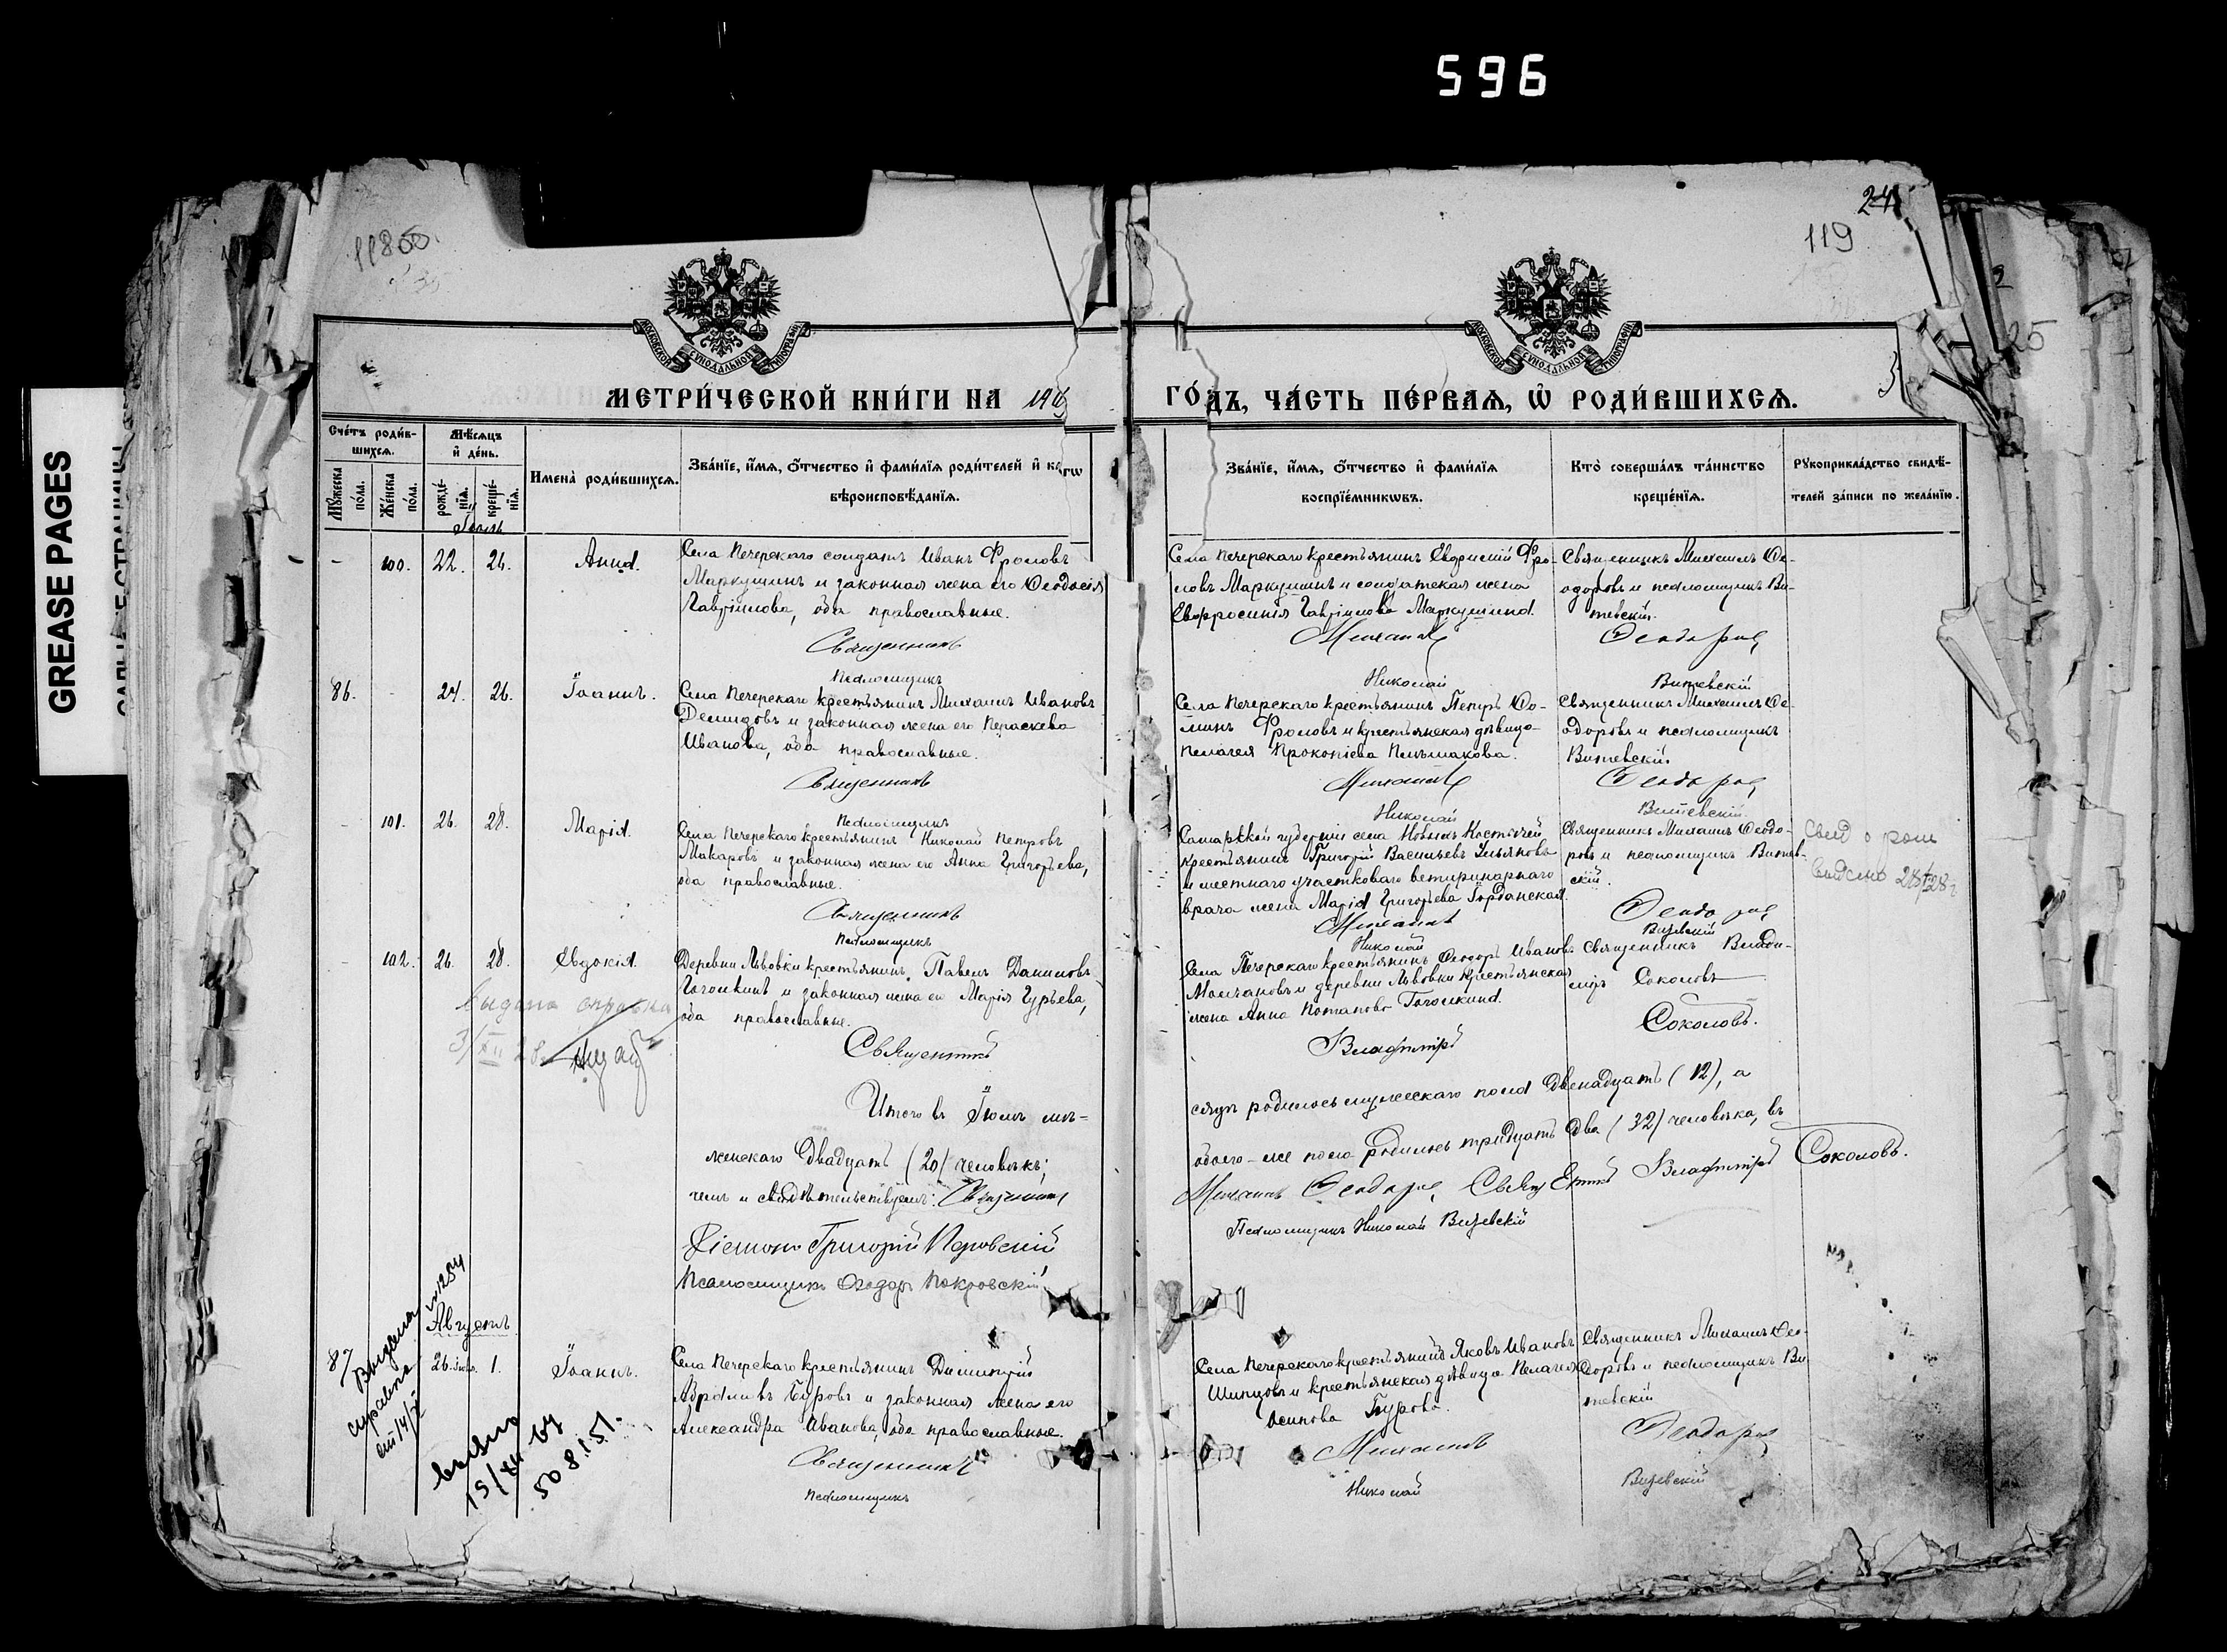 596
GREASE PAGES
24
119
25
МЕТРИ́ЧЕСКОЙ КНИ́ГИ НА
ГО́ДЪ, ЧА́СТЬ ПЕ́РВАѦ, Ѡ҆ РОДИ́ВШИХСѦ.
МОСКОВСКОЙ СѴНОДАЛЬНОЙ ТИПОГРАФІИ
МОСКОВСКОЙ СѴНОДАЛЬНОЙ ТИПОГРАФІИ
Сче́тъ роди́в-
шихсѧ.
Мѣ́сѧцъ
и҆ де́нь.
Мꙋ́жеска по́ла.
Же́нска по́ла.
рожде́-
нїѧ.
креще́-
нїѧ.
И҆мена̀ роди́вшихсѧ.
Зва́нїе, и҆́мѧ, ѻ҆́тчество и҆ фами́лїѧ роди́телей и҆ ко́гѡ
вѣроисповѣ́данїѧ.
Зва́нїе, и҆́мѧ, ѻ҆́тчество и҆ фами́лїѧ
воспрїе́мникѡвъ.
Кто̀ соверша́лъ та́инство
креще́нїѧ.
Рꙋкоприкла́дство свидѣ́-
телей за́писи по жела́нїю.
Іюль
- 100. 22. 26. Анна.
Села Печерскаго солдатъ Иванъ Фроловъ
Маркушинъ и законная жена его Ѳеодосія
Гавріилова, оба православные.
Священникъ
Псаломщикъ
Села Печерскаго крестьянинъ Евфимій Фро-
ловъ Маркушинъ и солдатская жена
Евфросинія Гавріилова Маркушина.
Михаилъ
Николай
Священникъ Михаилъ Ѳе-
одоровъ и псаломщикъ Ви-
тевскій.
Ѳеодоровъ
Витевскій
86. - 24. 26. Іоаннъ.
Села Печерскаго крестьянинъ Михаилъ Ивановъ
Демидовъ и законная жена его Параскева
Иванова, оба православные.
Священникъ
Псаломщикъ
Села Печерскаго крестьянинъ Петръ Ѳо-
минъ Фроловъ и крестьянская дѣвица
Пелагея Прокопіева
Михаилъ
Николай
Священникъ Михаилъ Ѳе-
одоровъ и псаломщикъ
Витевскій
Ѳеодоровъ
Витевскій
- 101. 26. 28. Марія.
Села Печерскаго крестьянинъ Николай Петровъ
Макаровъ и законная жена его Анна Григорьева,
оба православные.
Священникъ
Псаломщикъ
Самарской губерніи села Новыхъ Костычей
крестьянинъ Григорій Васильевъ Ульяновъ
и местнаго участковаго ветеринарнаго
врача жена Марія Григорьева Іорданская.
Михаилъ
Николай
Священникъ Михаилъ Ѳеодо-
ровъ и псаломщикъ Витев-
скій.
Ѳеодоровъ
Витевскій
- 102. 26. 28. Евдокія.
Деревни Львовки крестьянинъ Павелъ Даниловъ
Гоголкинъ и законная жена его Марія Гурьева,
оба православные.
Священникъ
Села Печерскаго крестьянинъ Ѳеодоръ Ивановъ
Молчановъ и деревни Львовки крестьянская
жена Анна Потапова Гоголкина.
Владиміръ
Священникъ Влади-
міръ Соколовъ
Соколовъ.
выдана справка
Итого въ Іюлѣ мѣ-
сяцѣ родилось мужескаго пола двенадцать (12), а
женскаго двадцать (20) человѣкъ;
обоего-же пола родилось тридцать два (32) человѣка, въ
чемъ и свидѣтельствуемъ: Священникъ
Михаилъ Ѳеодоровъ, Священникъ Владиміръ Соколовъ.
Діаконъ Григорій
Псаломщикъ Николай Витевскій
Псаломщикъ Ѳеодоръ Покровскій
Августъ
87 26. Іюля. 1. Іоаннъ.
Села Печерскаго крестьянинъ Димитрій
Абрамовъ Буровъ и законная жена его
Александра Иванова, оба православные.
Священникъ
Псаломщикъ
Села Печерскаго крестьянинъ Яковъ Ивановъ
Шипцовъ и крестьянская дѣвица Пелагея
Осипова Бурова.
Михаилъ
Николай
Священникъ Михаилъ Ѳео-
доровъ и псаломщикъ Ви-
тевскій
Ѳеодоровъ
Витевскій